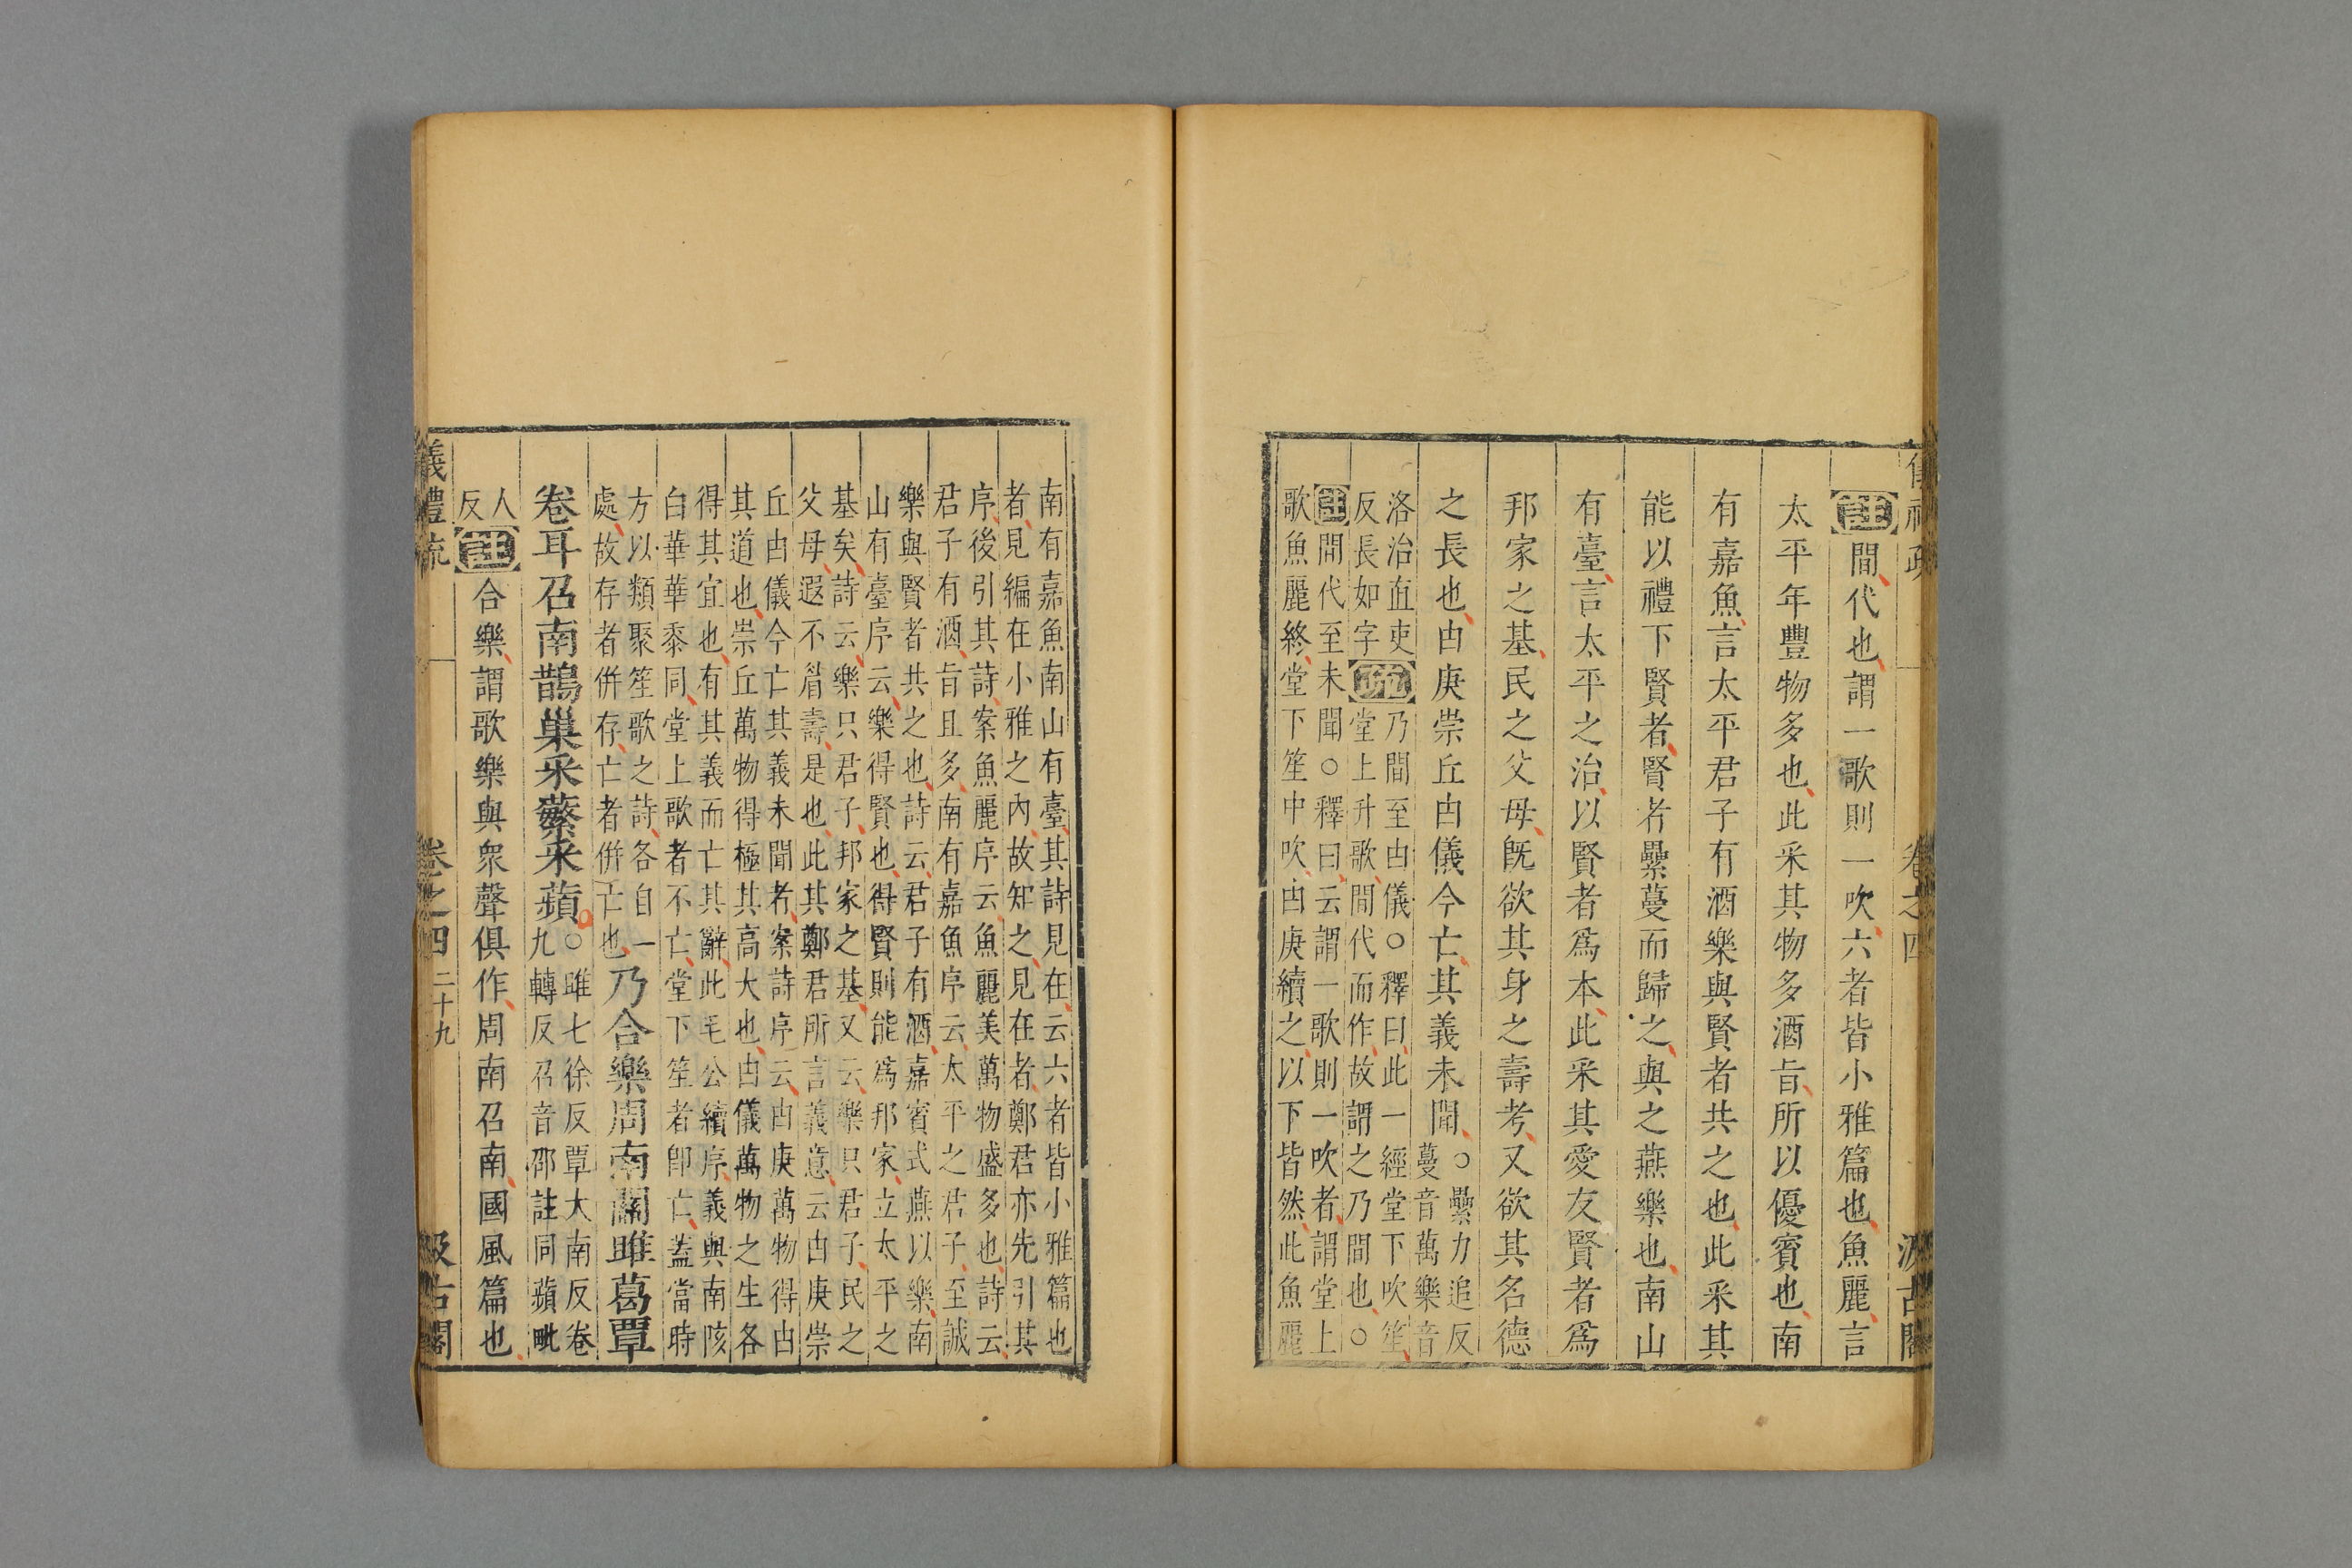 儀禮疏 卷之四 汲古閣
註間代也謂一歌則一吹六者皆小雅篇也魚麗言
太平年豐物多也此采其物多酒旨所以優賓也南
有嘉魚言太平君子有酒樂與賢者共之也此采其
能以禮下賢者賢者纍蔓而歸之與之燕樂也南山
有臺言太平之治以賢者爲本此采其愛友賢者爲
邦家之基民之父母旣欲其身之壽考又欲其名德
之長也由庚崇丘由儀今亡其義未聞○纍力追反
蔓音萬樂音
洛治直吏
反長如字
疏乃間至由儀○釋曰此一經堂下吹笙
堂上升歌間代而作故謂之乃間也○
註間代至未聞○釋曰云謂一歌則一吹者謂堂上
歌魚麗終堂下笙中吹由庚續之以下皆然此魚麗
南有嘉魚南山有臺其詩見在云六者皆小雅篇也
者見編在小雅之內故知之見在者鄭君亦先引其
序後引其詩案魚麗序云魚麗美萬物盛多也詩云
君子有酒旨且多南有嘉魚序云太平之君子至誠
樂與賢者共之也詩云君子有酒嘉賓式燕以樂南
山有臺序云樂得賢也得賢則能爲邦家立太平之
基矣詩云樂只君子邦家之基又云樂只君子民之
父母遐不眉壽是也此其鄭君所言義意云由庚崇
丘由儀今亡其義未聞者案詩序云由庚萬物得由
其道也崇丘萬物得極其高大也由儀萬物之生各
得其宜也有其義而亡其辭此毛公續序義與南陔
白華華黍同堂上歌者不亡堂下笙者卽亡蓋當時
方以類聚笙歌之詩各自一
處故存者併存亡者併亡也
乃合樂周南關雎葛覃
卷耳召南鵲巢采蘩采蘋○雎七徐反覃大南反卷
九轉反召音邵註同蘋毗
人
反
註合樂謂歌樂與衆聲俱作周南召南國風篇也
儀禮疏 卷之四 二十九 汲古閣